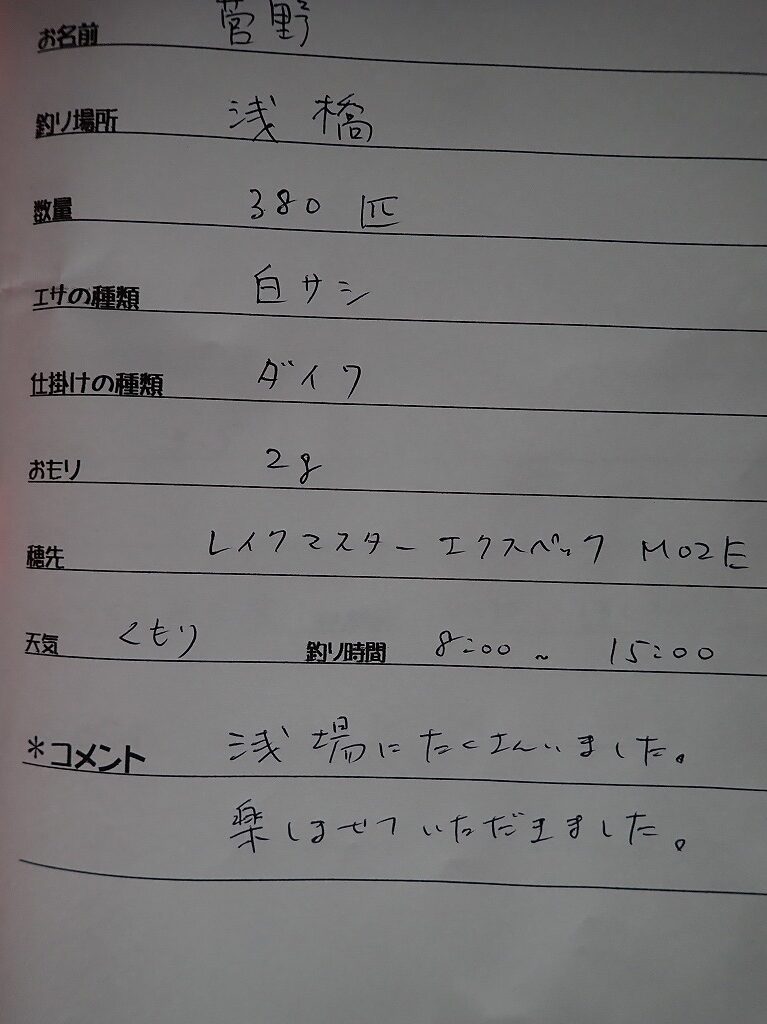 お名前 菅野
釣り場所 浅橋
数量 380匹
エサの種類 白サシ
仕掛けの種類 ダイワ
おもり 2g
穂先 レイクマスター エクスペック M02E
天気 くもり 釣り時間 8:00 ~ 15:00
*コメント 浅場にたくさんいました。
楽しませていただきました。